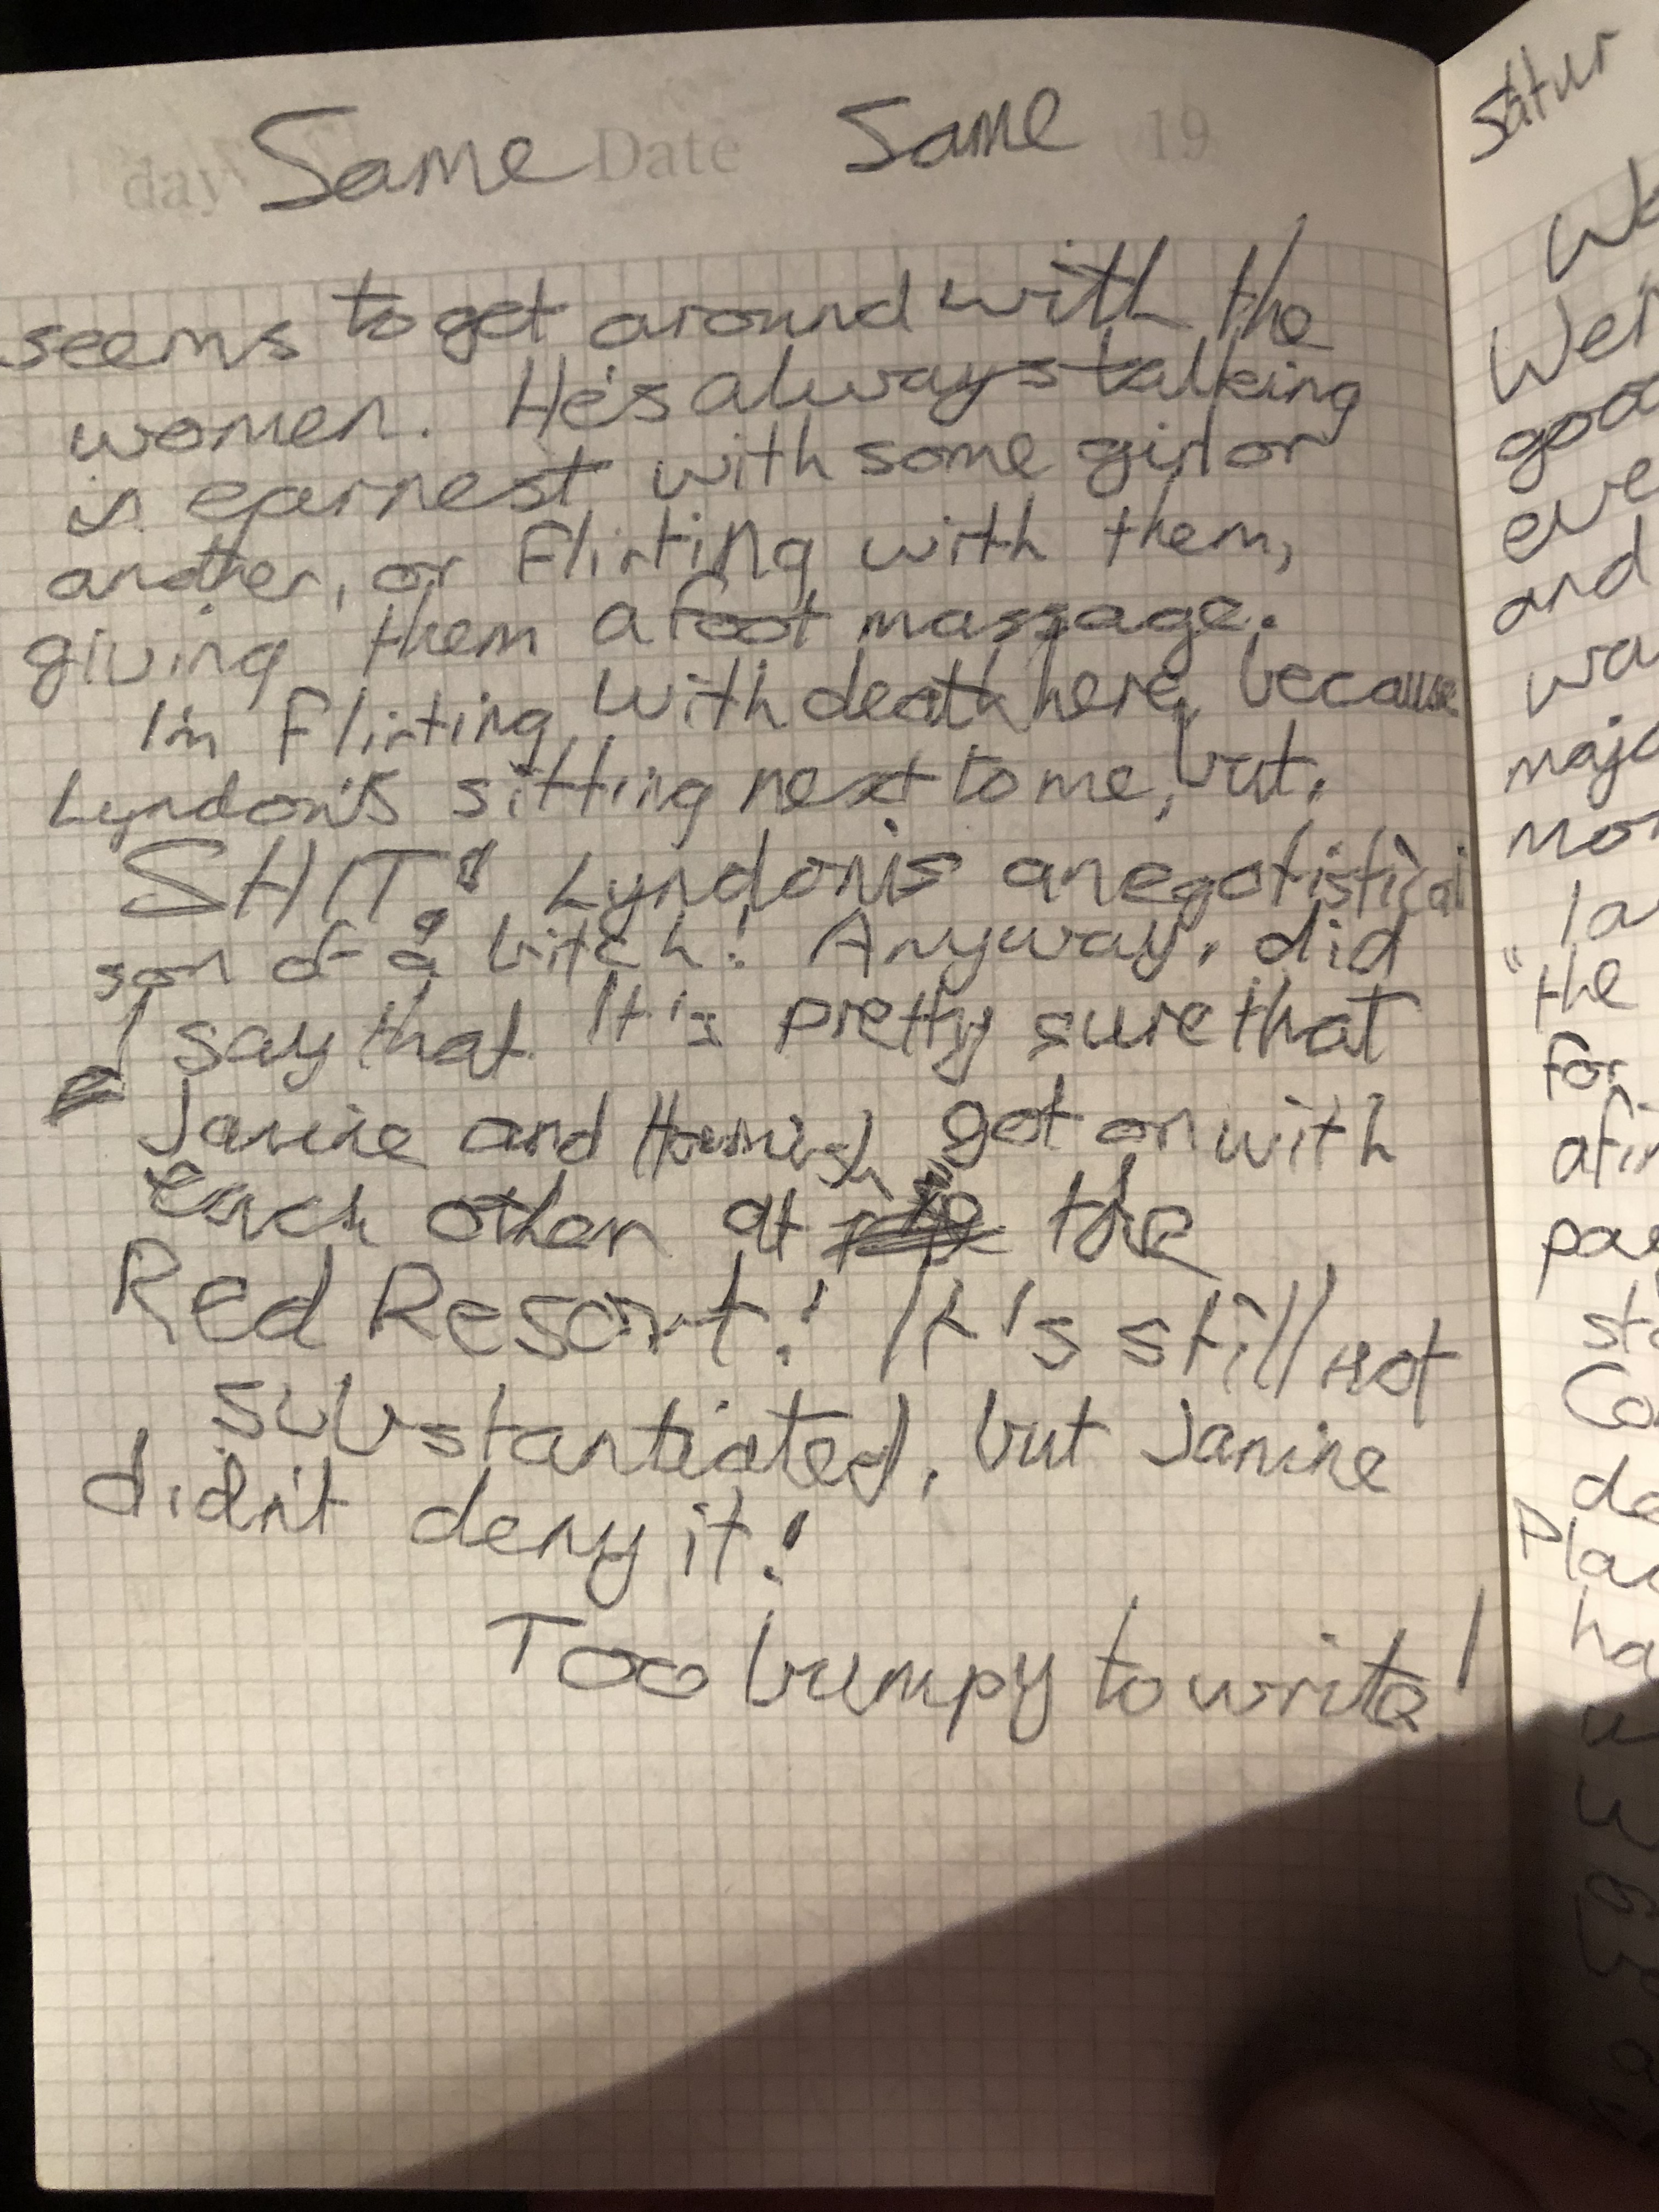 day Same Date Same 19
seems to get around with the
women. He's always talking
in earnest with some girl or
another, or flirting with them,
giving them a foot massage.
I'm flirting with death here, because
Lyndon's sitting next to me, but,
SHIT! Lyndon's an egotistical
son of a bitch! Anyway, did
I say that It's pretty sure that
Janine and Hamish got on with
each other at the
Red Resort! It's still not
substantiated, but Janine
didn't deny it!
Too bumpy to write!
Satur
We
Wer
good
eve
and
wa
majo
mor
la
"the
for
afir
pae
sta
Co
de
Plac
ha